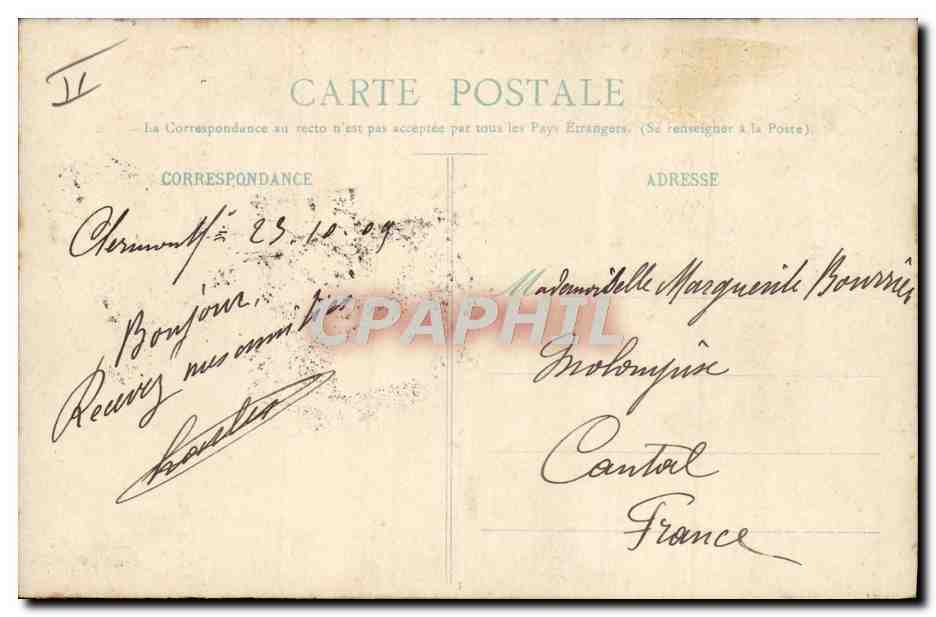 II
CARTE POSTALE
La Correspondance au recto n'est pas acceptée par tous les Pays Étrangers. (Se renseigner à la Poste).
CORRESPONDANCE
Clermont 23.10.09
Bonjour.
Recevez mes amitiés
ADRESSE
Mademoiselle Marguerite Bourrier
Cantal
France
CPAPHIL